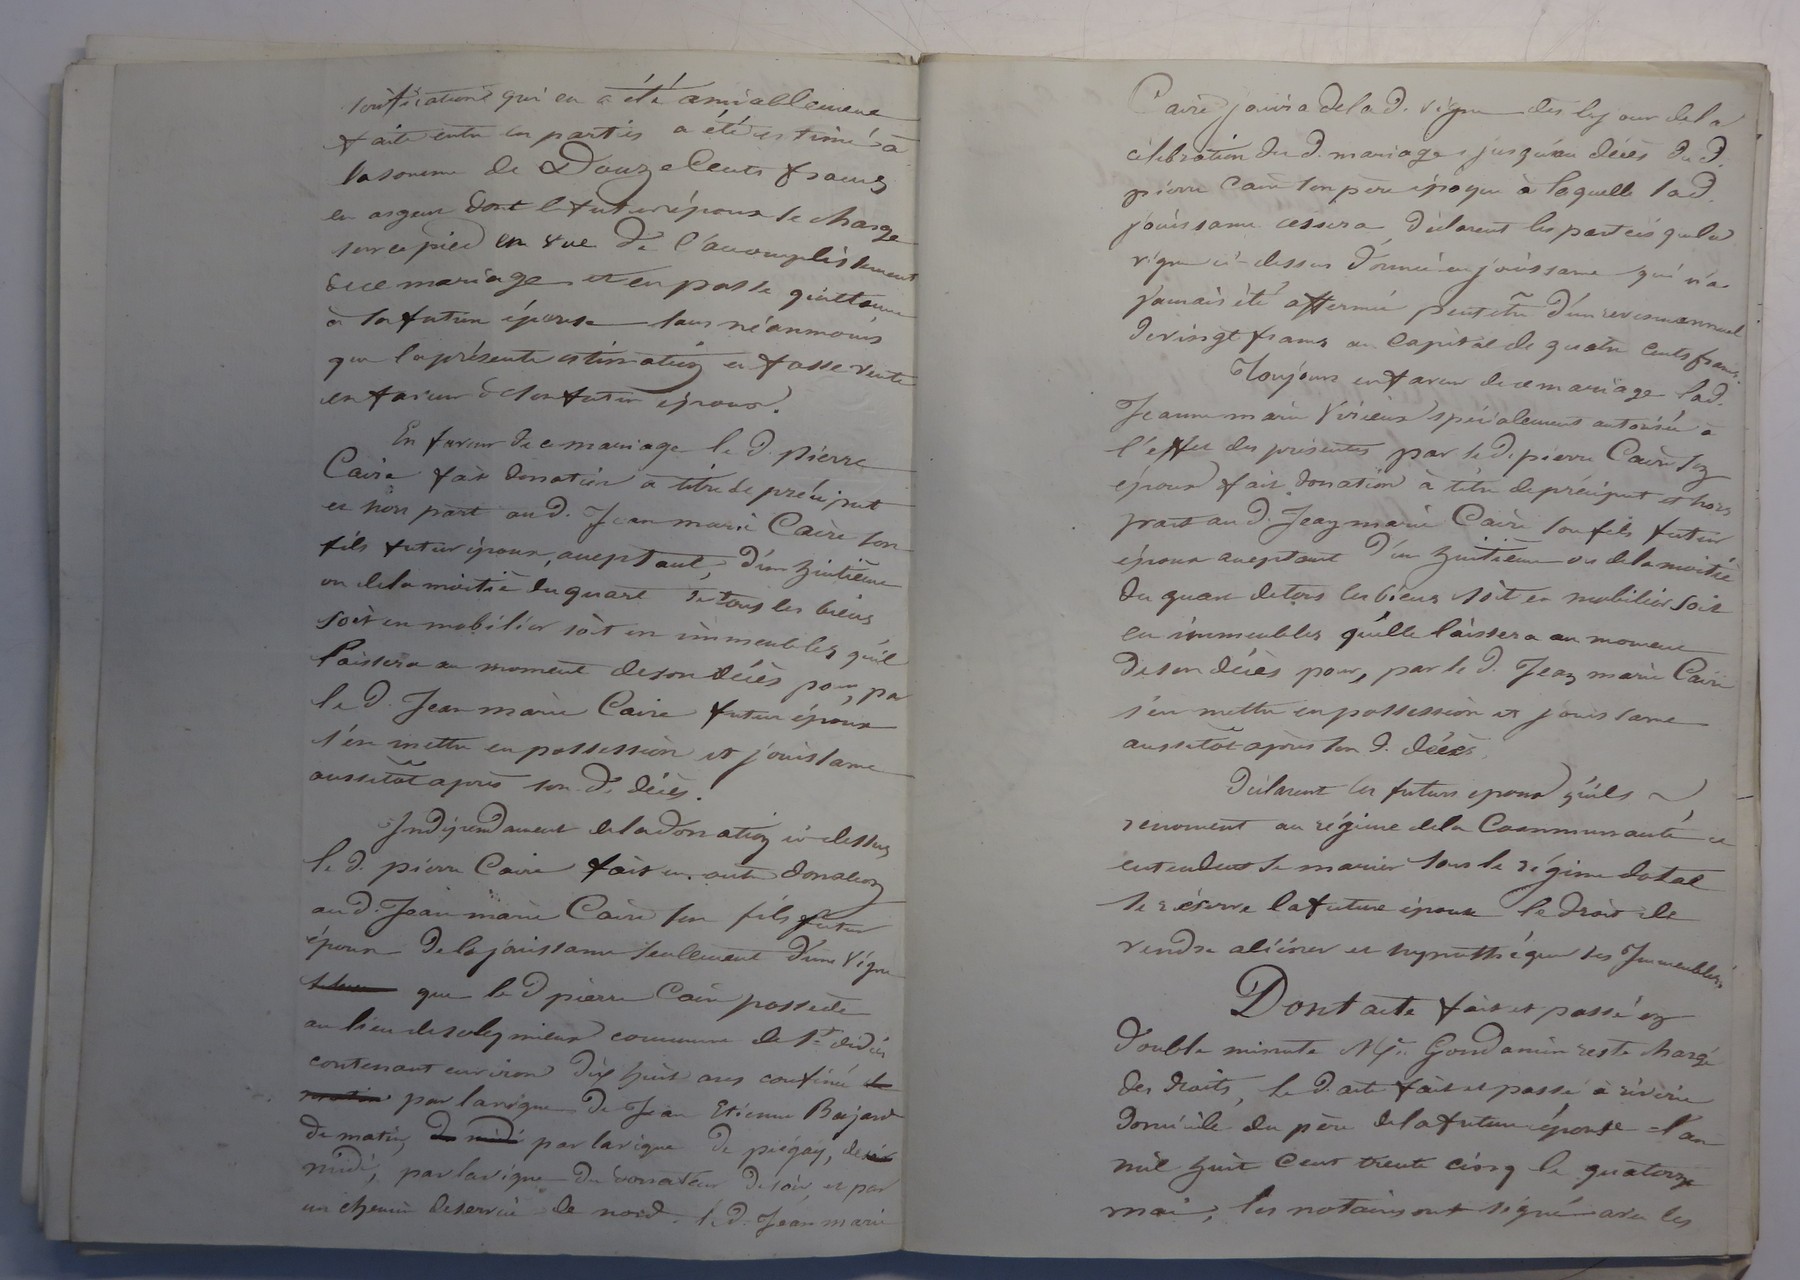 qui en a été amiablement
faite entre les parties a été estimé à
la somme de Douze Cents francs
en argent dont le futur époux se charge
sur ce pied en vue de l'accomplissement
de ce mariage et en passe quittance
à la future épouse sans néanmoins
que la présente estimation en fasse vente
en faveur de son futur époux.
En faveur de ce mariage le d. pierre
Caire fait donation a titre de préciput
et hors part au d. Jean marie Caire son
fils futur époux, acceptant, d'un huitième
ou de la moitié du quart de tous les biens
soit en mobilier soit en immeubles qu'il
laissera au moment de son décès pour, par
le d. Jean marie Caire futur époux
s'en mettre en possession et jouissance
aussitôt après son d. décès.
Indépendament de la donation ci-dessus
le d. pierre Caire fait en outre donation
au d. Jean marie Caire son fils futur
époux de la jouissance seulement d'une vigne
que le d pierre Caire possède
au lieu de solymieux commune de St. didier
contenant environ dix huit ares confiné
par la vigne de Jean Etienne Bajard
de matin, par la vigne de piégay, de
midi, par la vigne du donateur de soir, et par
un chemin deservie de nord. le d. Jean marie
Caire jouira de la d. vigne dès le jour de la
célébration du d. mariage jusqu'au décès du d.
pierre Caire son père époque à laquelle la d.
jouissance cessera, déclarent les parties que la
vigne ci-dessus donnée en jouissance qui n'a
jamais été affermée peut être d'un revenu annuel
de vingt francs au capital de quatre cents francs.
Toujours en faveur de ce mariage la d.
Jeanne marie Viricux spécialement autorisée à
l'effet des présentes par le d. pierre Caire son
époux fait donation à titre de préciput et hors
part au d. Jean marie Caire son fils futur
époux acceptant d'un huitième ou de la moitié
du quart de tous les biens soit en mobilier soit
en immeubles qu'elle laissera au moment
de son décès pour, par le d. Jean marie Caire
s'en mettre en possession et jouissance
aussitôt après son d. décès.
Déclarent les futurs epoux qu'ils
renoncent au régime de la Communauté et
entendent se marier sous le régime dotal
se réserve la future épouse le droit de
vendre aliéner et hypothéquer ses Immeubles
Dont acte fait et passé en
double minute Me. Gondamin reste chargé
des droits, le d. acte fait et passé à riverie
domicile du père de la future épouse l'an
mil huit cent trente cinq le quatorze
mai, les notaires ont signé avec les